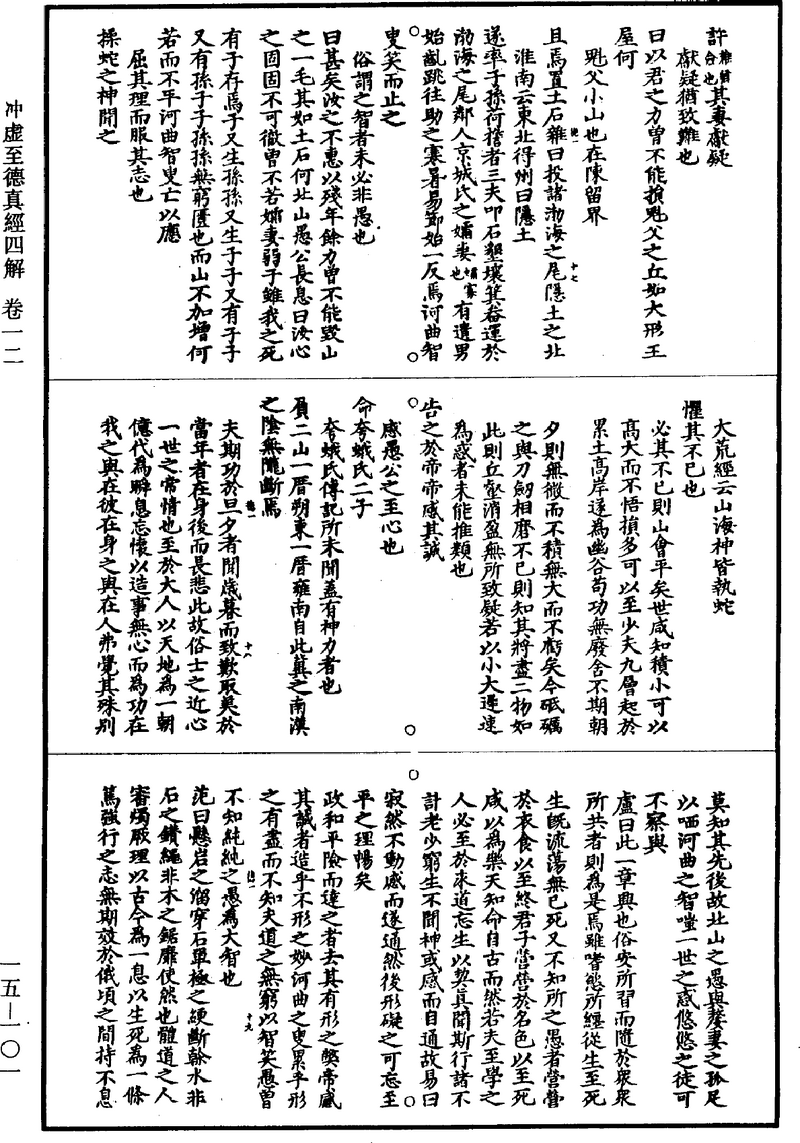 冲虛至德真經四解　卷一二
一五—一〇一
許雜猶合也其妻獻疑
獻疑猶致難也
曰以君之力曾不能損魁父之丘如大形王
屋何
魁父小山也在陳留界
且焉置土石雜曰投諸渤海之尾隱土之北
淮南云東北得州曰隱土
遂率子孫荷擔者三夫叩石墾壤箕畚運於
渤海之尾鄰人京城氏之孀妻孀寡也有遺男
始齔跳往助之寒暑易節始一反焉河曲智
叟笑而止之
俗謂之智者未必非愚也
曰甚矣汝之不惠以殘年餘力曾不能毀山
之一毛其如土石何北山愚公長息曰汝心
之固固不可徹曾不若孀妻弱子雖我之死
有子存焉子又生孫孫又生子子又有子子
又有孫子子孫孫無窮匱也而山不加增何
若而不平河曲智叟亡以應
屈其理而服其志也
操蛇之神聞之
大荒經云山海神皆執蛇
懼其不已也
必其不已則山會平矣世咸知積小可以
高大而不悟損多可以至少夫九層起於
累土高岸遂為幽谷苟功無廢舍不期朝
夕則無微而不積無大而不虧矣今砥礪
之與刀劒相磨不已則知其將盡二物如
此則丘壑消盈無所致疑若以小大遲速
為惑者未能推類也
告之於帝帝感其誠
感愚公之至心也
命夸蛾氏二子
夸蛾氏傳記所未聞蓋有神力者也
負二山一厝朔東一厝雍南自此冀之南漢
之陰無隴斷焉
夫期功於旦夕者聞歲暮而致歎取美於
當年者在身後而長悲此故俗士之近心
一世之常情也至於大人以天地為一朝
億代為瞬息忘懷以造事無心而為功在
我之與在彼在身之與在人弗覺其殊別
莫知其先後故北山之愚與嫠妻之孤足
以哂河曲之智嗤一世之惑悠悠之徒可
不察與
盧曰此一章興也俗安所習而隨於衆衆
所共者則為是焉雖嗜慾所纏從生至死
生既流蕩無已死又不知所之愚者營營
於衣食以至終君子營營於名色以至死
咸以為樂天知命自古而然若夫至學之
人必至於求道忘生以契真聞斯行諸不
計老少窮生不聞神或感而自通故易曰
寂然不動感而遂通然後形礙之可忘至
平之理暢矣
政和平險而達之者去其有形之獘帝感
其誠者造乎不形之妙河曲之叟累乎形
之有盡而不知夫道之無窮以智笑愚曾
不知純純之愚為大智也
范曰懸岩之溜穿石單極之綆斷榦水非
石之鑽繩非木之鋸靡使然也體道之人
審燭厥理以古今為一息以生死為一條
篤強行之志無期效於俄頃之間持不息